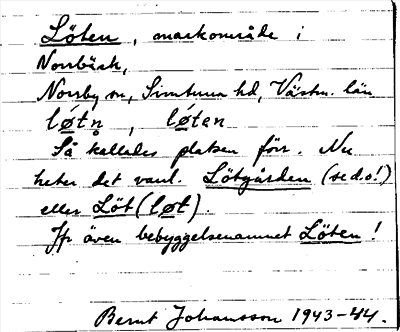 Löten, markområde i
Norrbäck,
Norrby sn, Simtuna hd, Västm. län
løtn̥, løtan
Så kallades platsen förr. Nu
heter det vanl. Lötgården (se d.o!)
eller Löt (løt)
Jfr även bebyggelsenamnet Löten!
Bernt Johansson 1943-44.